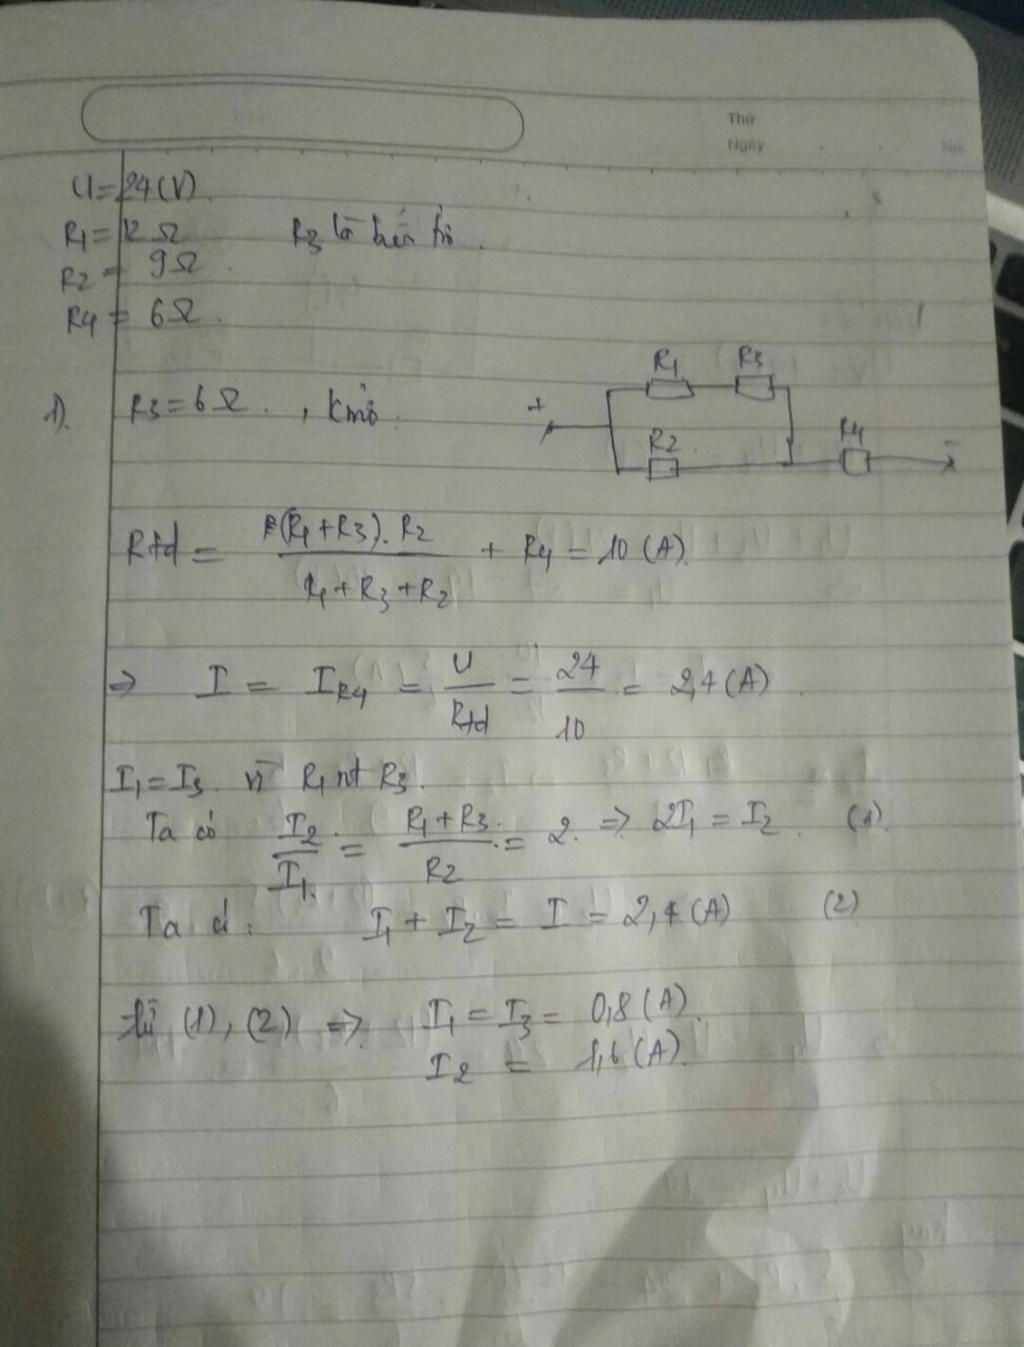 Thứ
Ngày
No.
U = 24 (V)
R1 = 12 Ω R3 là biến trở.
R2 = 9 Ω.
R4 = 6 Ω.
1). R3 = 6 Ω. , K mở.
R1 R3
+ R2 R4 -
Rtđ = (R1 + R3). R2 / R1 + R3 + R2 + R4 = 10 (A).
=> I = IR4 = U / Rtđ = 24 / 10 = 2,4 (A).
I1 = I3 vì R1 nt R3.
Ta có I2 / I1 = R1 + R3 / R2 = 2. => 2I1 = I2. (1).
Ta có: I1 + I2 = I = 2,4 (A) (2)
từ (1), (2) => I1 = I3 = 0,8 (A).
I2 = 1,6 (A).